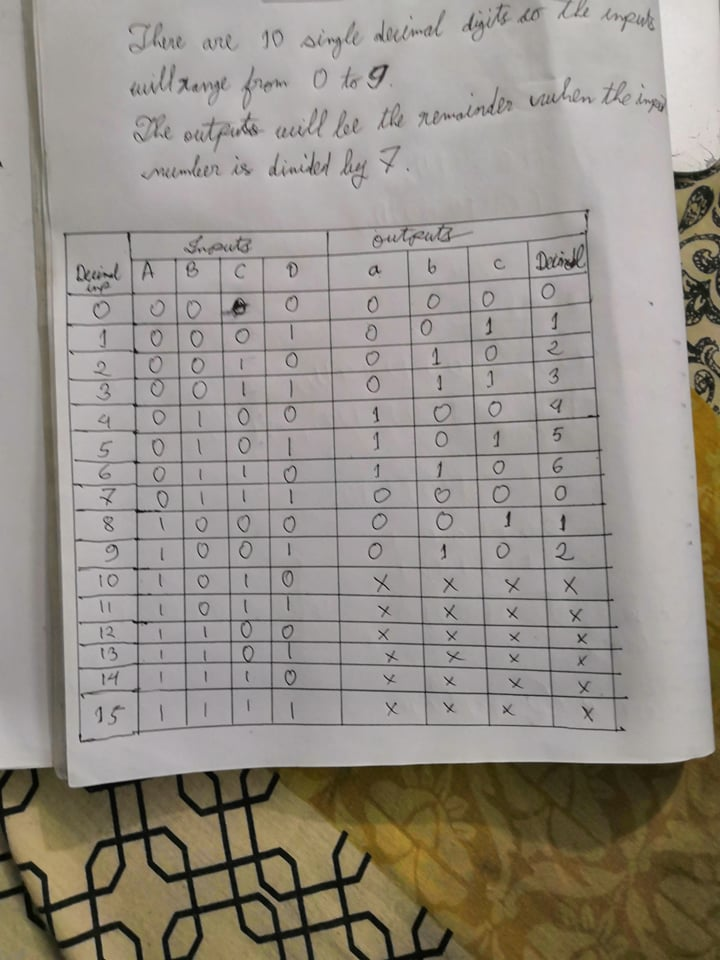 There are 10 single decimal digits so the inputs
will range from 0 to 9.
The outputs will be the remainder when the
number is divided by 7.
Inputs outputs
Decimal inp A B C D a b c Decimal
0 0 0 0 0 0 0 0 0
1 0 0 0 1 0 0 1 1
2 0 0 1 0 0 1 0 2
3 0 0 1 1 0 1 1 3
4 0 1 0 0 1 0 0 4
5 0 1 0 1 1 0 1 5
6 0 1 1 0 1 1 0 6
7 0 1 1 1 0 0 0 0
8 1 0 0 0 0 0 1 1
9 1 0 0 1 0 1 0 2
10 1 0 1 0 x x x x
11 1 0 1 1 x x x x
12 1 1 0 0 x x x x
13 1 1 0 1 x x x x
14 1 1 1 0 x x x x
15 1 1 1 1 x x x x